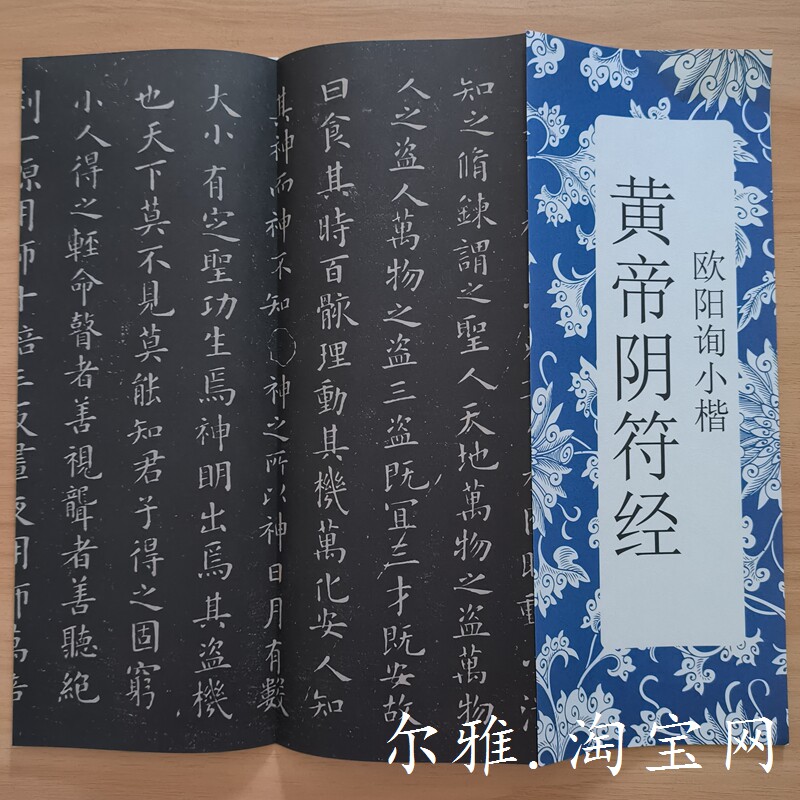 欧阳询小楷
黄帝阴符经
知之脩鍊謂之聖人天地萬物之盜萬物
人之盜人萬物之盜三盜既冝三才既安故
曰食其時百骸理動其機萬化安人知
其神而神不知神之所以神日月有數
大小有㝎聖功生焉神眀出焉其盜機
也天下莫不見莫能知君子得之固窮
小人得之輕命瞽者善視聾者善聽絶
利一源用師十倍三反晝夜用師萬倍
尔雅.淘宝网